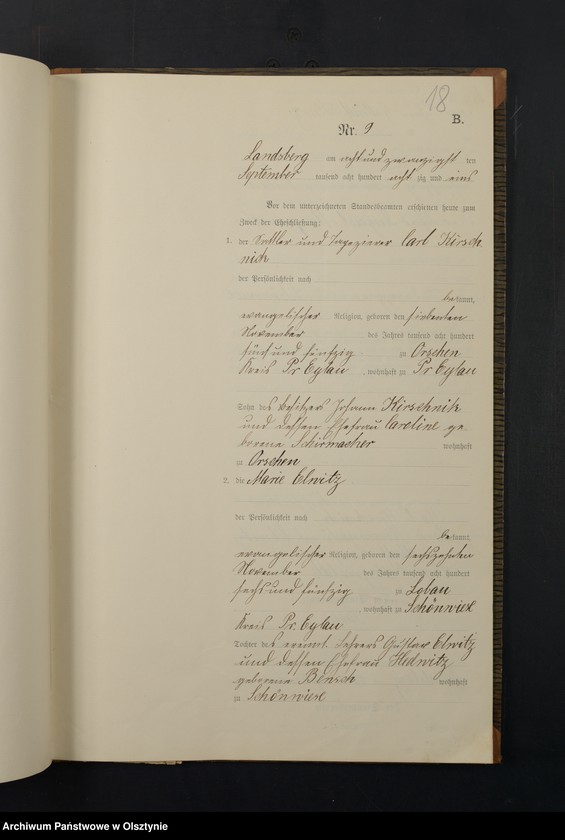 18
B.
Nr. 9
Landsberg am acht und zwanzigst ten
September tausend acht hundert acht zig und eins
Vor dem unterzeichneten Standesbeamten erschienen heute zum
Zweck der Eheschließung:
1. der Sattler und Tapezierer Carl Kirsch
nick
der Persönlichkeit nach
bekannt,
evangelischer Religion, geboren den siebenten
November des Jahres tausend acht hundert
fünf und fünfzig zu Orschen
Kreis Pr Eylau, wohnhaft zu Pr Eylau
Sohn des Besitzers Johann Kirschnik
und dessen Ehefrau Caroline ge
borene Schirmacher wohnhaft
zu Orschen
2. die Marie Elwitz
der Persönlichkeit nach
bekannt,
evangelischer Religion, geboren den sechszehnten
November des Jahres tausend acht hundert
sechs und fünfzig zu Lobau
, wohnhaft zu Schönwiese
Kreis Pr. Eylau
Tochter des eremt. Lehrers Gustav Elwitz
und dessen Ehefrau Hedwitz
geborene Bensch wohnhaft
zu Schönwiese
Archiwum Państwowe w Olsztynie